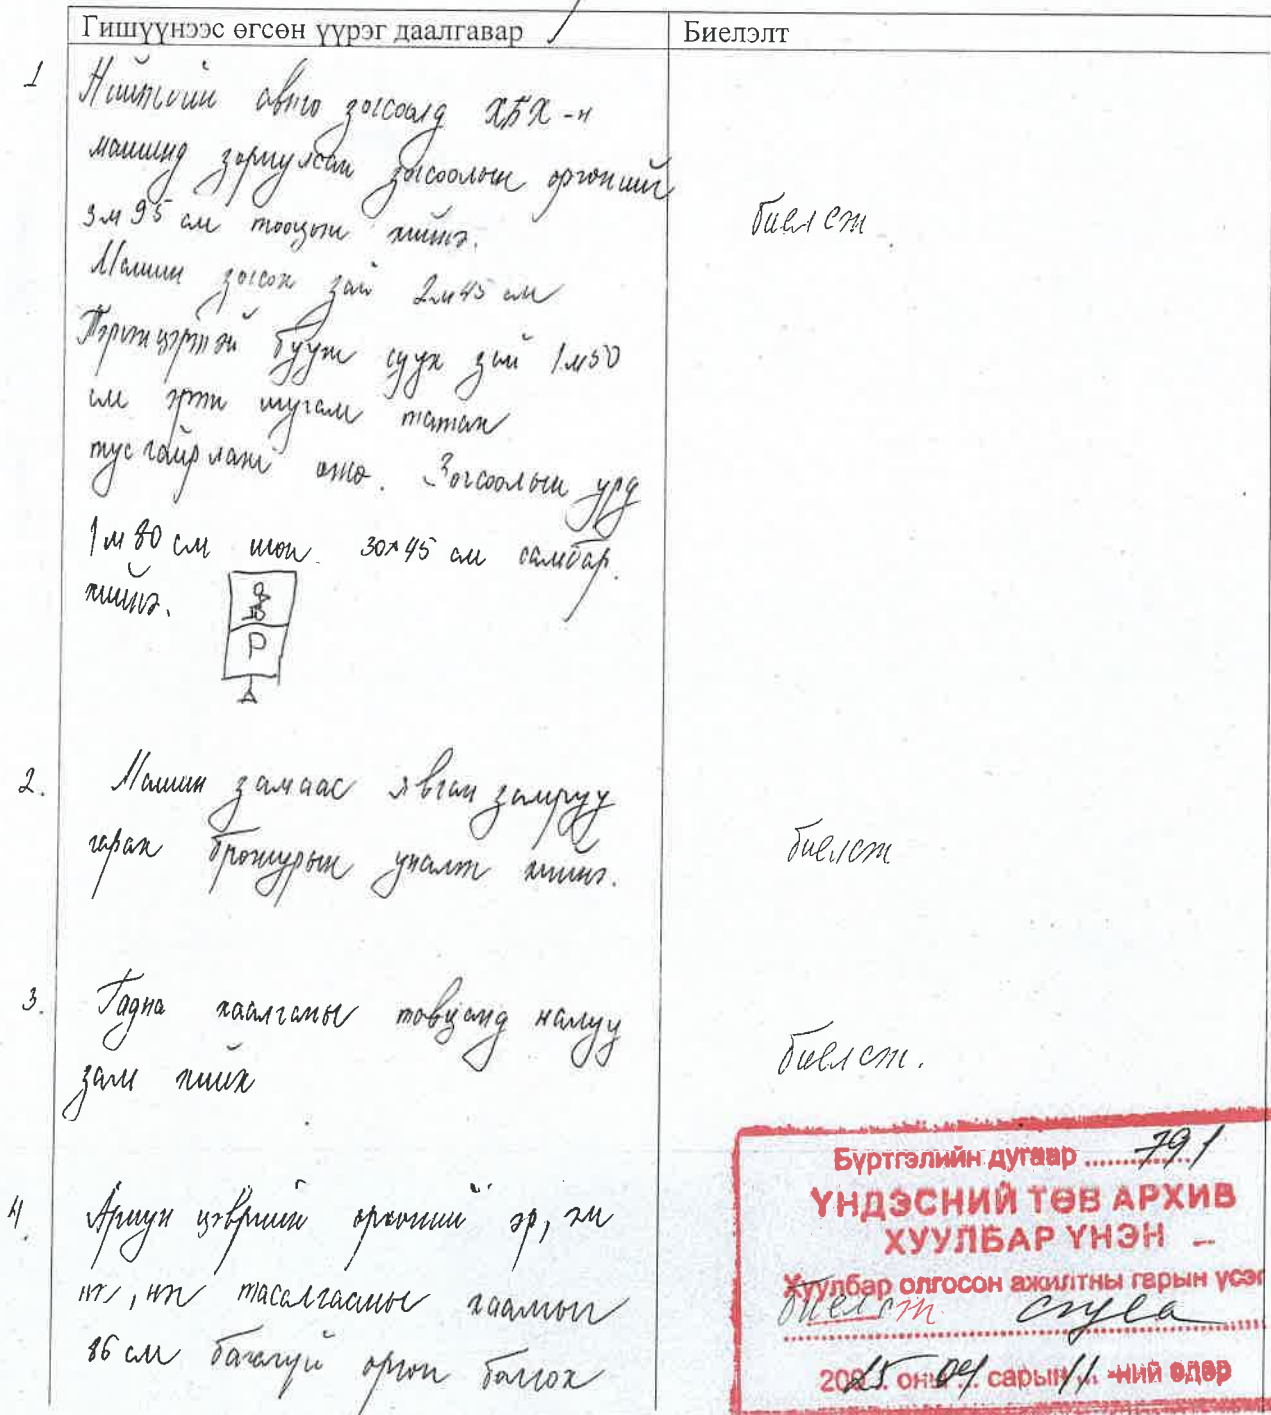 Гишүүнээс өгсөн үүрэг даалгавар
Биелэлт
1
Нийтийн авто зогсоолд ХБХ-н
машинд зориулсан зогсоолын өргөнийг
3м 95 см тооцон хийнэ.
биелсэн
Машин зогсох зай 2м45 см
Тэргэнцэртэй бууж суух зай 1м50
см зурж шугам татах
тусгайрлан өгнө. Зогсоолын урд
1м 80 см шон 30×45 см самбар
хийнэ.
P
2.
Машин замаас явган замруу
гарах бровжурын уналт хийнэ.
биелсэн
3.
Гадна хаалганы товцонд налуу
зам хийх
биелсэн.
4.
Ариун цэврийн өрөөний эр, эм
тасалгааны хаалгыг
86 см багагүй өргөн болгох
Бүртгэлийн дугаар ........ 791
ҮНДЭСНИЙ ТӨВ АРХИВ
ХУУЛБАР ҮНЭН
Хуулбар олгосон ажилтны гарын үсэг
биелсэн
2025 оны 04 сарын 11 -ний өдөр